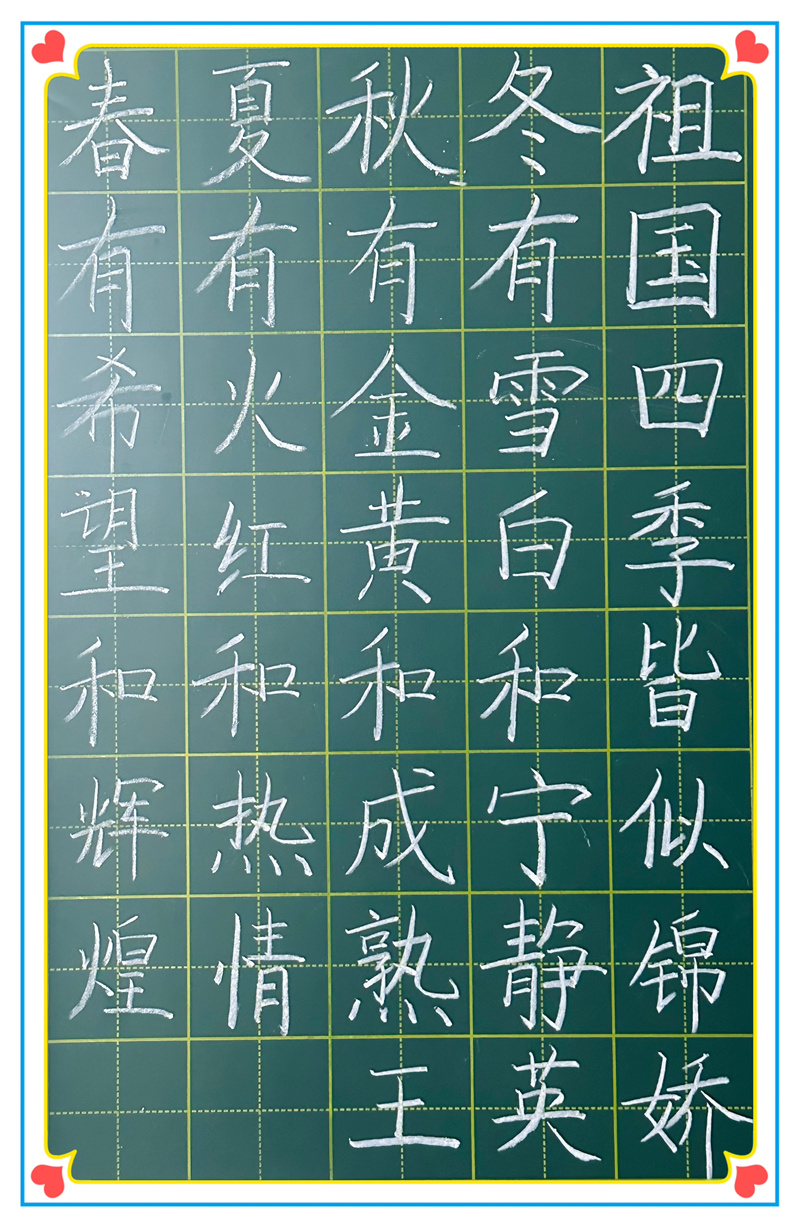 春有希望和辉煌
夏有火红和热情
秋有金黄和成熟
冬有雪白和宁静
祖国四季皆似锦
王英娇